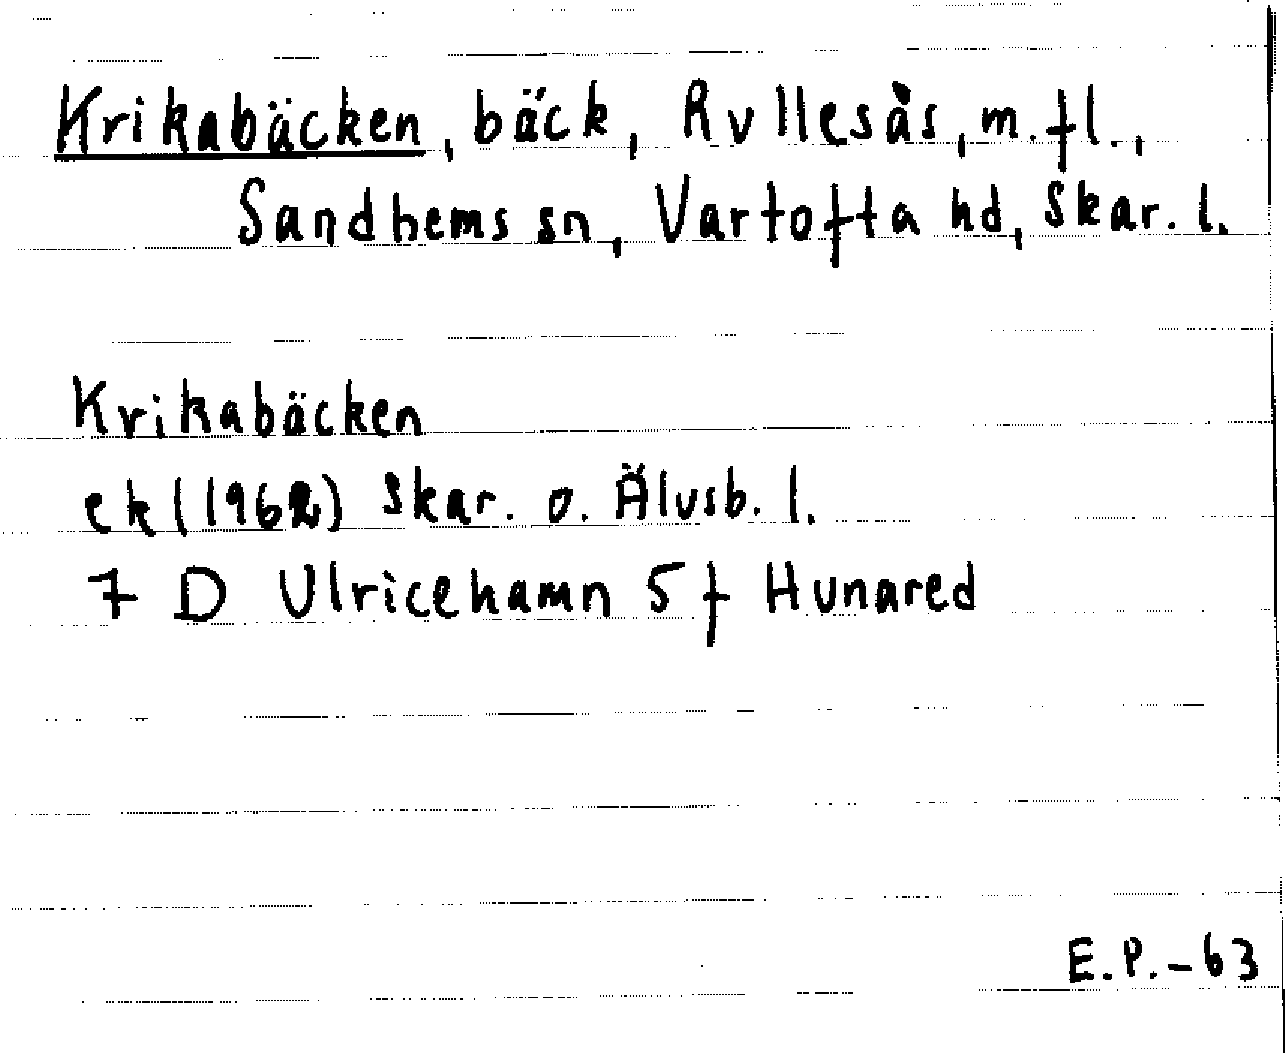 Krikabäcken, bäck, Rullesås, m.fl.,
Sandhems sn, Vartofta hd, Skar. l.
Krikabäcken
ek (1962) Skar. o. Älvsb. l.
7 D Ulricehamn 5 f Hunared
E.P.-63